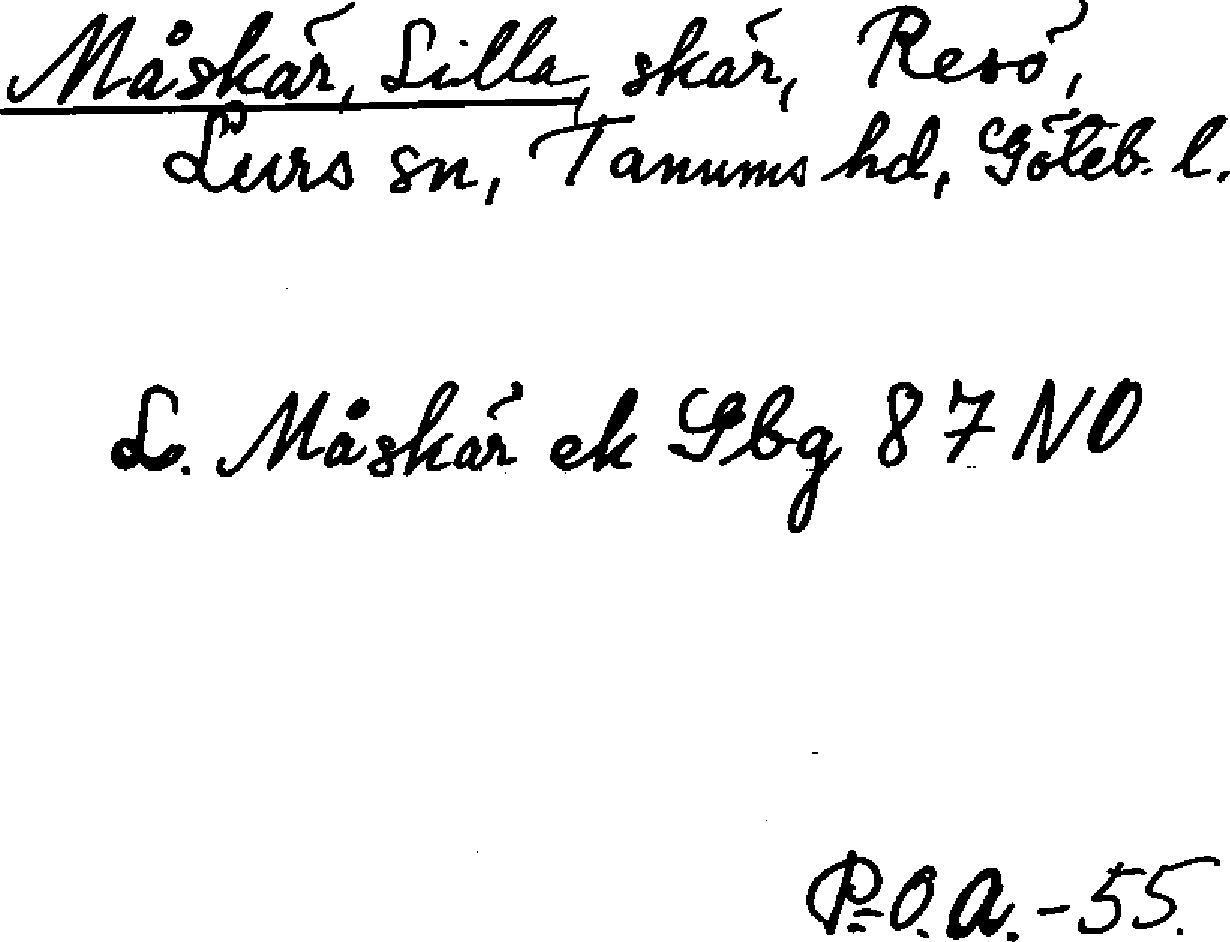 Måskär, Lilla, skär, Resö,
Lurs sn, Tanums hd, Göteb. l.
L. Måskär ek Gbg 87 NO
P-O.A.-55.